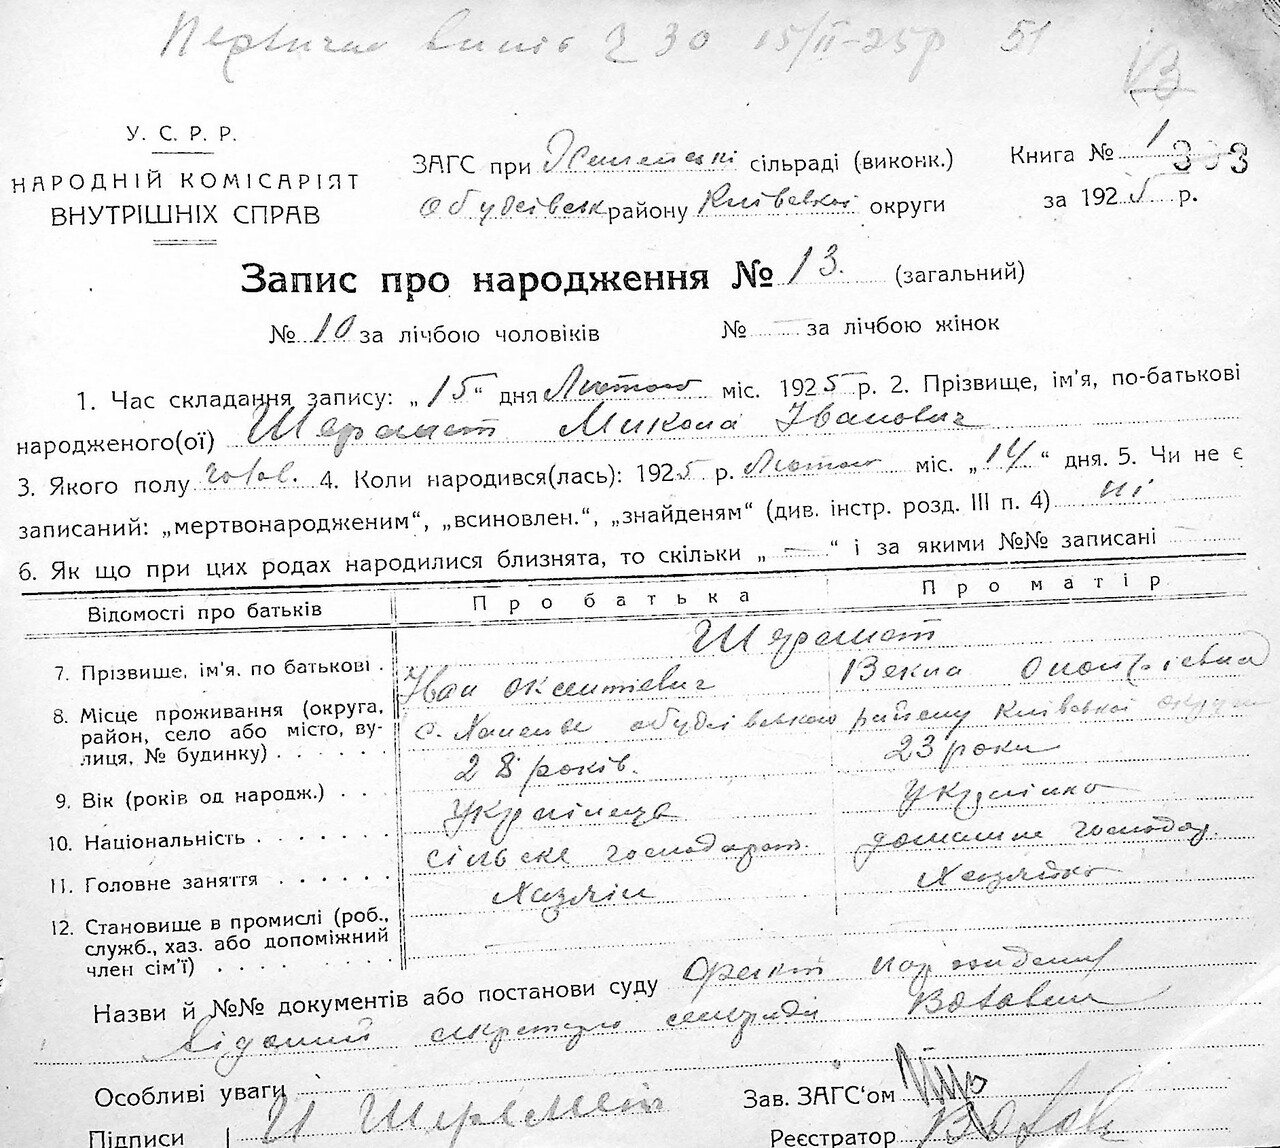 Первична випис З 30 15/II-25р 51
У. С. Р. Р.
НАРОДНІЙ КОМІСАРІЯТ
ВНУТРІШНІХ СПРАВ
ЗАГС при сільраді (виконк.)
Обухівськ району Київської округи
Книга № 1 333
за 1925 р.
Запис про народження № 13. (загальний)
№ 10 за лічбою чоловіків № — за лічбою жінок
1. Час складання запису: „15“ дня Лютого міс. 1925 р. 2. Прізвище, ім'я, по-батькові
народженого(ої) Шеремет Микола Іванович
3. Якого полу чолов. 4. Коли народився(лась): 1925 р. Лютого міс. „14“ дня. 5. Чи не є
записаний: „мертвонародженим“, „всиновлен.“, „знайденям“ (див. інстр. розд. III п. 4) ні
6. Як що при цих родах народилися близнята, то скільки „ — “ і за якими №№ записані
Відомості про батьків Про батька Про матір
Шеремет
7. Прізвище, ім'я, по батькові . Іван Оксентієвич Векла Онопрієвна
8. Місце проживання (округа, район, село або місто, вулиця, № будинку) . . . . с. Обухівського району Київської округи
9. Вік (років од народж.) . . . 28 років. 23 роки
10. Національність . . . . . . . Українець Українка
11. Головне заняття . . . . . . сільське господарст. домашнє господар.
12. Становище в промислі (роб., служб., хаз. або допоміжний член сім'ї) . . . . . . . . Хазяїн Хазяйка
Назви й №№ документів або постанови суду Факт народження
відомий секретарю сельради
Особливі уваги
Зав. ЗАГС'ом
Підписи И Шеремет
Реєстратор